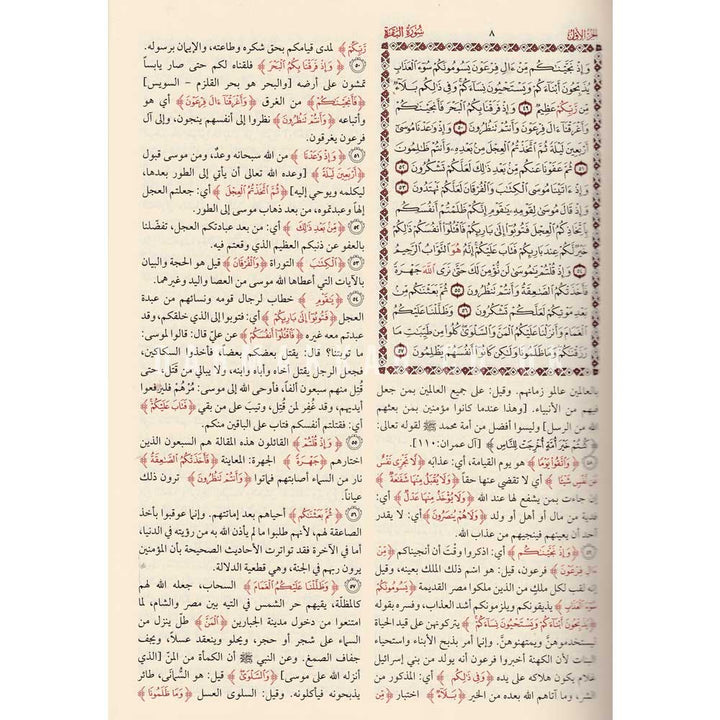 الجزء الأول
٨
سُورَةُ البَقَرَة
وَإِذْ نَجَّيْنَٰكُم مِّنْ ءَالِ فِرْعَوْنَ يَسُومُونَكُمْ سُوٓءَ ٱلْعَذَابِ
يُذَبِّحُونَ أَبْنَآءَكُمْ وَيَسْتَحْيُونَ نِسَآءَكُمْ وَفِى ذَٰلِكُم بَلَآءٌ
مِّن رَّبِّكُمْ عَظِيمٌ ٤٩ وَإِذْ فَرَقْنَا بِكُمُ ٱلْبَحْرَ فَأَنجَيْنَٰكُمْ
وَأَغْرَقْنَآ ءَالَ فِرْعَوْنَ وَأَنتُمْ تَنظُرُونَ ٥٠ وَإِذْ وَٰعَدْنَا مُوسَىٰٓ
أَرْبَعِينَ لَيْلَةً ثُمَّ ٱتَّخَذْتُمُ ٱلْعِجْلَ مِنۢ بَعْدِهِۦ وَأَنتُمْ ظَٰلِمُونَ
٥١ ثُمَّ عَفَوْنَا عَنكُم مِّنۢ بَعْدِ ذَٰلِكَ لَعَلَّكُمْ تَشْكُرُونَ ٥٢
وَإِذْ ءَاتَيْنَا مُوسَى ٱلْكِتَٰبَ وَٱلْفُرْقَانَ لَعَلَّكُمْ تَهْتَدُونَ ٥٣
وَإِذْ قَالَ مُوسَىٰ لِقَوْمِهِۦ يَٰقَوْمِ إِنَّكُمْ ظَلَمْتُمْ أَنفُسَكُم
بِٱتِّخَاذِكُمُ ٱلْعِجْلَ فَتُوبُوٓا۟ إِلَىٰ بَارِئِكُمْ فَٱقْتُلُوٓا۟ أَنفُسَكُمْ ذَٰلِكُمْ
خَيْرٌ لَّكُمْ عِندَ بَارِئِكُمْ فَتَابَ عَلَيْكُمْ إِنَّهُۥ هُوَ ٱلتَّوَّابُ ٱلرَّحِيمُ
٥٤ وَإِذْ قُلْتُمْ يَٰمُوسَىٰ لَن نُّؤْمِنَ لَكَ حَتَّىٰ نَرَى ٱللَّهَ جَهْرَةً
فَأَخَذَتْكُمُ ٱلصَّٰعِقَةُ وَأَنتُمْ تَنظُرُونَ ٥٥ ثُمَّ بَعَثْنَٰكُم مِّنۢ
بَعْدِ مَوْتِكُمْ لَعَلَّكُمْ تَشْكُرُونَ ٥٦ وَظَلَّلْنَا عَلَيْكُمُ
ٱلْغَمَامَ وَأَنزَلْنَا عَلَيْكُمُ ٱلْمَنَّ وَٱلسَّلْوَىٰ كُلُوا۟ مِن طَيِّبَٰتِ مَا
رَزَقْنَٰكُمْ وَمَا ظَلَمُونَا وَلَٰكِن كَانُوٓا۟ أَنفُسَهُمْ يَظْلِمُونَ ٥٧
بالعالمين عالمو زمانهم. وقيل: على جميع العالمين بمن جعل
فيهم من الأنبياء. [وهذا عندما كانوا مؤمنين بمن بعثهم
الله من الرسل] وليسوا أفضل من أمة محمد ﷺ لقوله تعالى:
﴿كُنتُمْ خَيْرَ أُمَّةٍ أُخْرِجَتْ لِلنَّاسِ﴾ [آل عمران: ١١٠].
٤٨ ﴿وَاتَّقُوا يَوْمًا﴾ هو يوم القيامة، أي: عذابه ﴿لَّا تَجْزِى نَفْسٌ
عَن نَّفْسٍ شَيْئًا﴾ أي لا تقضي عنها حقاً ﴿وَلَا يُقْبَلُ مِنْهَا شَفَٰعَةٌ﴾
إن جاءت بمن يشفع لها عند الله ﴿وَلَا يُؤْخَذُ مِنْهَا عَدْلٌ﴾ أي:
فدية من مال أو أهل أو ولد ﴿وَلَا هُمْ يُنصَرُونَ﴾ أي: لا يقدر
أحد أن يعينهم فينجيهم من عذاب الله.
٤٩ ﴿وَإِذْ نَجَّيْنَٰكُم﴾ أي: اذكروا وقتَ أن أنجيناكم ﴿مِّنْ
ءَالِ فِرْعَوْنَ﴾ فرعون، قيل: هو اسم ذلك الملك بعينه، وقيل
إنه لقب لكل ملك من الذين ملكوا مصر القديمة ﴿يَسُومُونَكُمْ
سُوٓءَ ٱلْعَذَابِ﴾ يذيقونكم ويلزمونكم أشد العذاب، وفسره بقوله
﴿يُذَبِّحُونَ أَبْنَآءَكُمْ وَيَسْتَحْيُونَ نِسَآءَكُمْ﴾ يتركونهن على قيد الحياة
ليستخدموهنّ ويمتهنوهنّ. وإنما أمر بذبح الأبناء واستحياء
البنات لأن الكهنة أخبروا فرعون أنه يولد من بني إسرائيل
غلام يكون هلاكه على يده ﴿وَفِى ذَٰلِكُم﴾ أي: المذكور من
الشر، وما آتاهم الله بعده من الخير ﴿بَلَآءٌ﴾ اختبار ﴿مِّن
رَّبِّكُمْ﴾ لمدى قيامكم بحق شكره وطاعته، والإيمان برسوله.
٥٠ ﴿وَإِذْ فَرَقْنَا بِكُمُ ٱلْبَحْرَ﴾ فلقناه لكم حتى صار يابساً
تمشون على أرضه [والبحر هو بحر القلزم - السويس]
﴿فَأَنجَيْنَٰكُمْ﴾ من الغرق ﴿وَأَغْرَقْنَآ ءَالَ فِرْعَوْنَ﴾ أي هو
وأتباعه ﴿وَأَنتُمْ تَنظُرُونَ﴾ نظروا إلى أنفسهم ينجون، وإلى آل
فرعون يغرقون.
٥١ ﴿وَإِذْ وَٰعَدْنَا﴾ من الله سبحانه وعدٌ، ومن موسى قبول
﴿أَرْبَعِينَ لَيْلَةً﴾ [وعده الله تعالى أن يأتي إلى الطور بعدها،
ليكلمه ويوحي إليه] ﴿ثُمَّ ٱتَّخَذْتُمُ ٱلْعِجْلَ﴾ أي: جعلتم العجل
إلهاً وعبدتموه، من بعد ذهاب موسى إلى الطور.
٥٢ ﴿مِّنۢ بَعْدِ ذَٰلِكَ﴾ أي: من بعد عبادتكم العجل، تفضّلنا
بالعفو عن ذنبكم العظيم الذي وقعتم فيه.
٥٣ ﴿ٱلْكِتَٰبَ﴾ التوراة ﴿وَٱلْفُرْقَانَ﴾ قيل هو الحجة والبيان
بالآيات التي أعطاها الله موسى من العصا واليد وغيرهما.
٥٤ ﴿يَٰقَوْمِ﴾ خطاب لرجال قومه ونسائهم من عبدة
العجل ﴿فَتُوبُوٓا۟ إِلَىٰ بَارِئِكُمْ﴾ أي: فتوبوا إلى الذي خلقكم، وقد
عبدتم معه غيره ﴿فَٱقْتُلُوٓا۟ أَنفُسَكُمْ﴾ عن عليّ قال: قالوا لموسى:
ما توبتنا؟ قال: يقتل بعضكم بعضاً، فأخذوا السكاكين،
فجعل الرجل يقتل أخاه وأباه وابنه، ولا يبالي من قَتَل حتى
قُتِل منهم سبعون ألفاً، فأوحى الله إلى موسى: مُرْهُمْ فليرفعوا
أيديهم، وقد غُفِر لمن قُتِل، وتيبَ على من بقي ﴿فَتَابَ عَلَيْكُمْ﴾
أي: فقتلتم أنفسكم فتاب على الباقين منكم.
٥٥ ﴿وَإِذْ قُلْتُمْ﴾ القائلون هذه المقالة هم السبعون الذين
اختارهم ﴿جَهْرَةً﴾ الجهرة: المعاينة ﴿فَأَخَذَتْكُمُ ٱلصَّٰعِقَةُ﴾
نار من السماء أصابتهم فماتوا ﴿وَأَنتُمْ تَنظُرُونَ﴾ ترون ذلك
عياناً.
٥٦ ﴿ثُمَّ بَعَثْنَٰكُم﴾ أحياهم بعد إماتتهم. وإنما عوقبوا بأخذ
الصاعقة لهم، لأنهم طلبوا ما لم يأذن الله به من رؤيته في الدنيا،
أما في الآخرة فقد تواترت الأحاديث الصحيحة بأن المؤمنين
يرون ربهم في الجنة، وهي قطعية الدلالة.
٥٧ ﴿وَظَلَّلْنَا عَلَيْكُمُ ٱلْغَمَامَ﴾ السحاب، جعله الله لهم
كالمظلّة، يقيهم حر الشمس في التيه بين مصر والشام، لما
امتنعوا من دخول مدينة الجبارين ﴿ٱلْمَنَّ﴾ طلّ ينزل من
السماء على شجر أو حجر، ويحلو وينعقد عسلاً، ويجف
جفاف الصمغ. وعن النبي ﷺ أن الكمأة من المنّ [الذي
أنزله الله على موسى] ﴿وَٱلسَّلْوَىٰ﴾ قيل: هو السُّمَانَى، طائر
يذبحونه فيأكلونه. وقيل: السلوى العسل ﴿وَمَا ظَلَمُونَا﴾